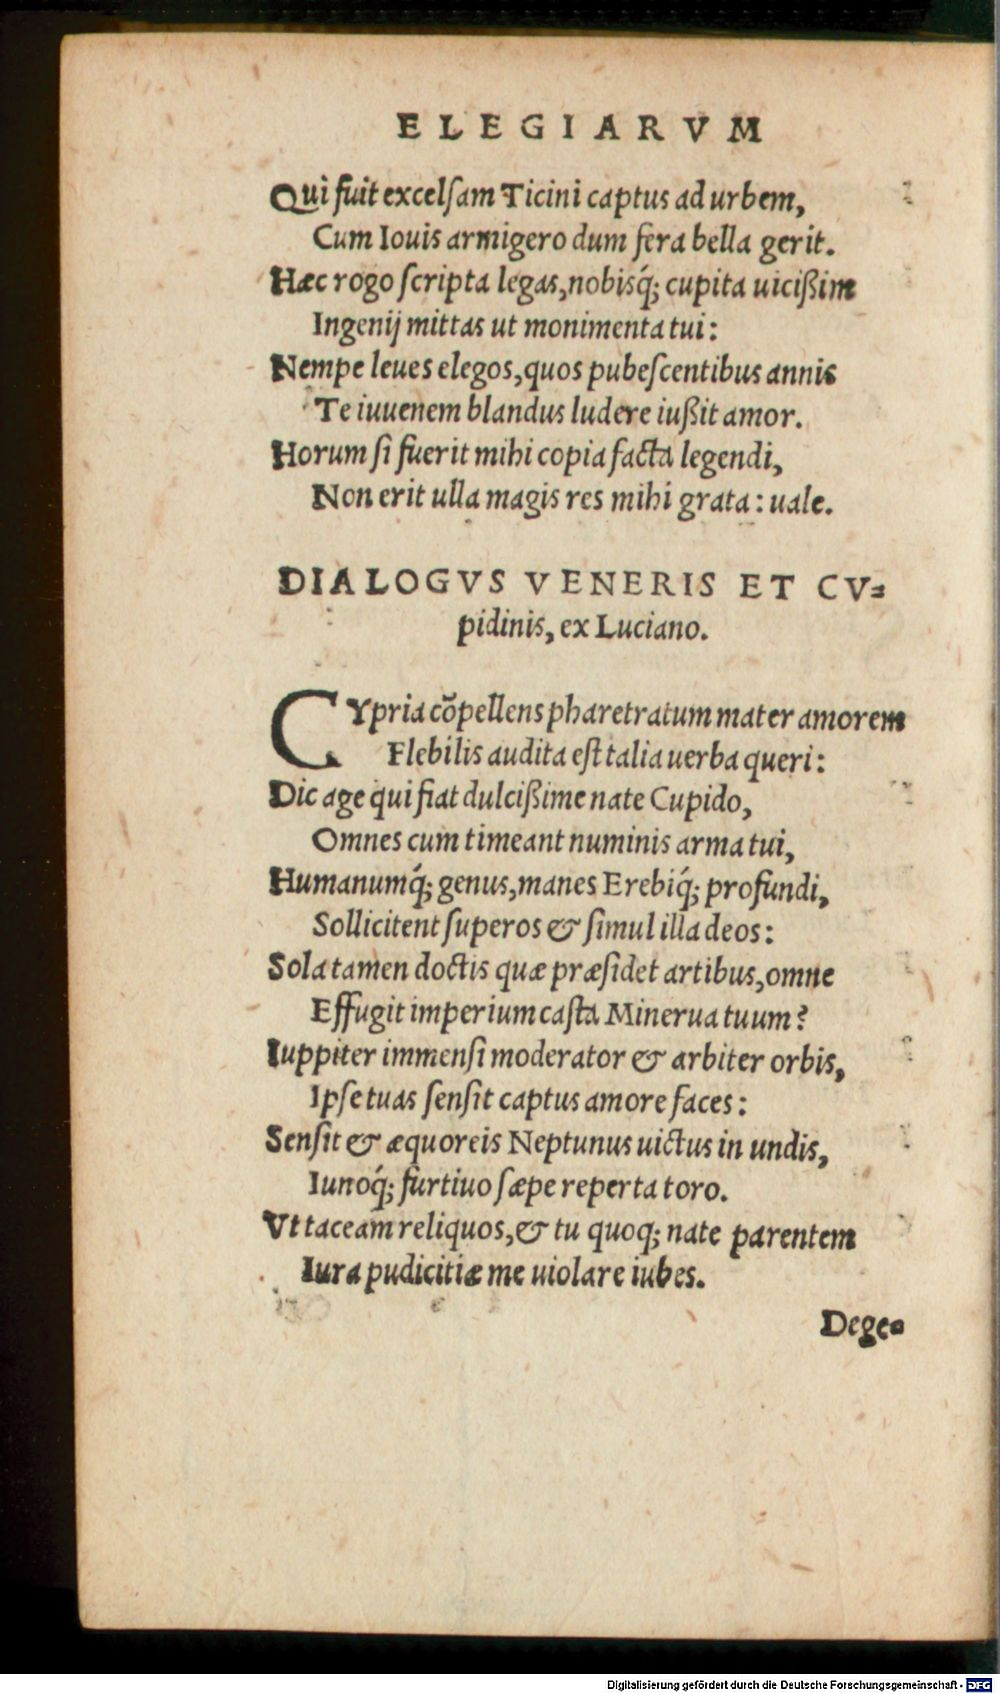 ELEGIARVM
Qui fuit excelſam Ticini captus ad urbem,
Cum Iouis armigero dum fera bella gerit.
Hæc rogo ſcripta legas, nobisq́; cupita uicißim
Ingenij mittas ut monimenta tui:
Nempe leues elegos, quos pubeſcentibus annis
Te iuuenem blandus ludere iußit amor.
Horum ſi fuerit mihi copia facta legendi,
Non erit ulla magis res mihi grata: uale.
DIALOGVS VENERIS ET CV=
pidinis, ex Luciano.
CYpria cõpellens pharetratum mater amorem
Flebilis audita eſt talia uerba queri:
Dic age qui fiat dulcißime nate Cupido,
Omnes cum timeant numinis arma tui,
Humanumq́; genus, manes Erebiq́; profundi,
Sollicitent ſuperos & ſimul illa deos:
Sola tamen doctis quæ præſidet artibus, omne
Effugit imperium caſta Minerua tuum?
Iuppiter immenſi moderator & arbiter orbis,
Ipſe tuas ſenſit captus amore faces:
Senſit & æquoreis Neptunus uictus in undis,
Iunoq́; furtiuo ſæpe reperta toro.
Vt taceam reliquos, & tu quoq; nate parentem
Iura pudicitiæ me uiolare iubes.
Dege=
Digitalisierung gefördert durch die Deutsche Forschungsgemeinschaft - DFG